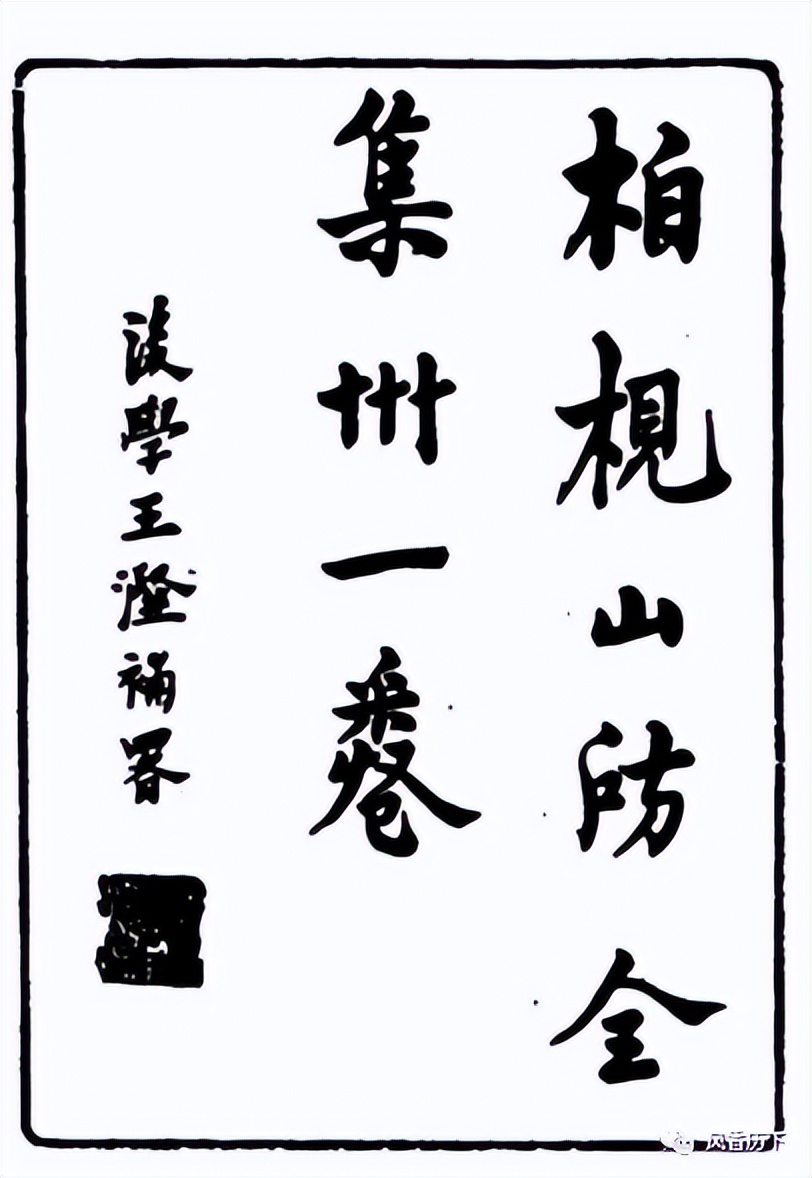 柏梘山房全
集卅一卷
後學王澄補署
风香历下